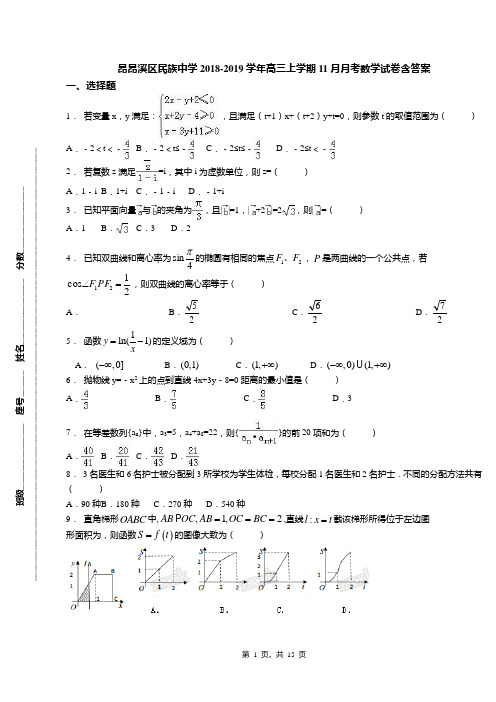 昂昂溪区民族中学 2018-2019 学年高三上学期 11 月月考数学试卷含答案
一、选择题
1． 若变量 x，y 满足：{2x﹣y+2≤0, x+2y﹣4≥0, x﹣3y+11≥0，且满足（t+1）x+（t+2）y+t=0，则参数 t 的取值范围为（ ）
A．﹣2＜t＜﹣4/3 B．﹣2＜t≤﹣4/3 C．﹣2≤t≤﹣4/3 D．﹣2≤t＜﹣4/3
2． 若复数 z 满足z̄/(1-i)=i，其中 i 为虚数单位，则 z=（ ）
A．1﹣i B．1+i C．﹣1﹣i D．﹣1+i
3． 已知平面向量a与b的夹角为π/3，且|b|=1，|a+2b|=2√3，则|a|=（ ）
A．1 B．√3 C．3 D．2
4． 已知双曲线和离心率为sin π/4的椭圆有相同的焦点F₁、F₂，P 是两曲线的一个公共点，若
cos∠F₁PF₂=1/2，则双曲线的离心率等于（ ）
A． B．√5/2 C．√6/2 D．√7/2
5． 函数 y=ln(1/x−1)的定义域为（ ）
A． (−∞,0] B．(0,1) C．(1,+∞) D．(−∞,0)∪(1,+∞)
6． 抛物线 y=﹣x²上的点到直线 4x+3y﹣8=0 距离的最小值是（ ）
A．4/3 B．7/5 C．8/5 D．3
7． 在等差数列{aₙ}中，a₃=5，a₄+a₈=22，则{1/(aₙ•aₙ₊₁)}的前 20 项和为（ ）
A．40/41 B．20/41 C．42/43 D．21/43
8． 3 名医生和 6 名护士被分配到 3 所学校为学生体检，每校分配 1 名医生和 2 名护士．不同的分配方法共有
（ ）
A．90 种 B．180 种 C．270 种 D．540 种
9． 直角梯形 OABC 中, AB P OC, AB=1, OC=BC=2 ,直线 l:x=t 截该梯形所得位于左边图
形面积为，则函数 S=f(t)的图像大致为（ ）
A． B． C． D．
第 1 页，共 15 页
班级 座号 姓名 分数